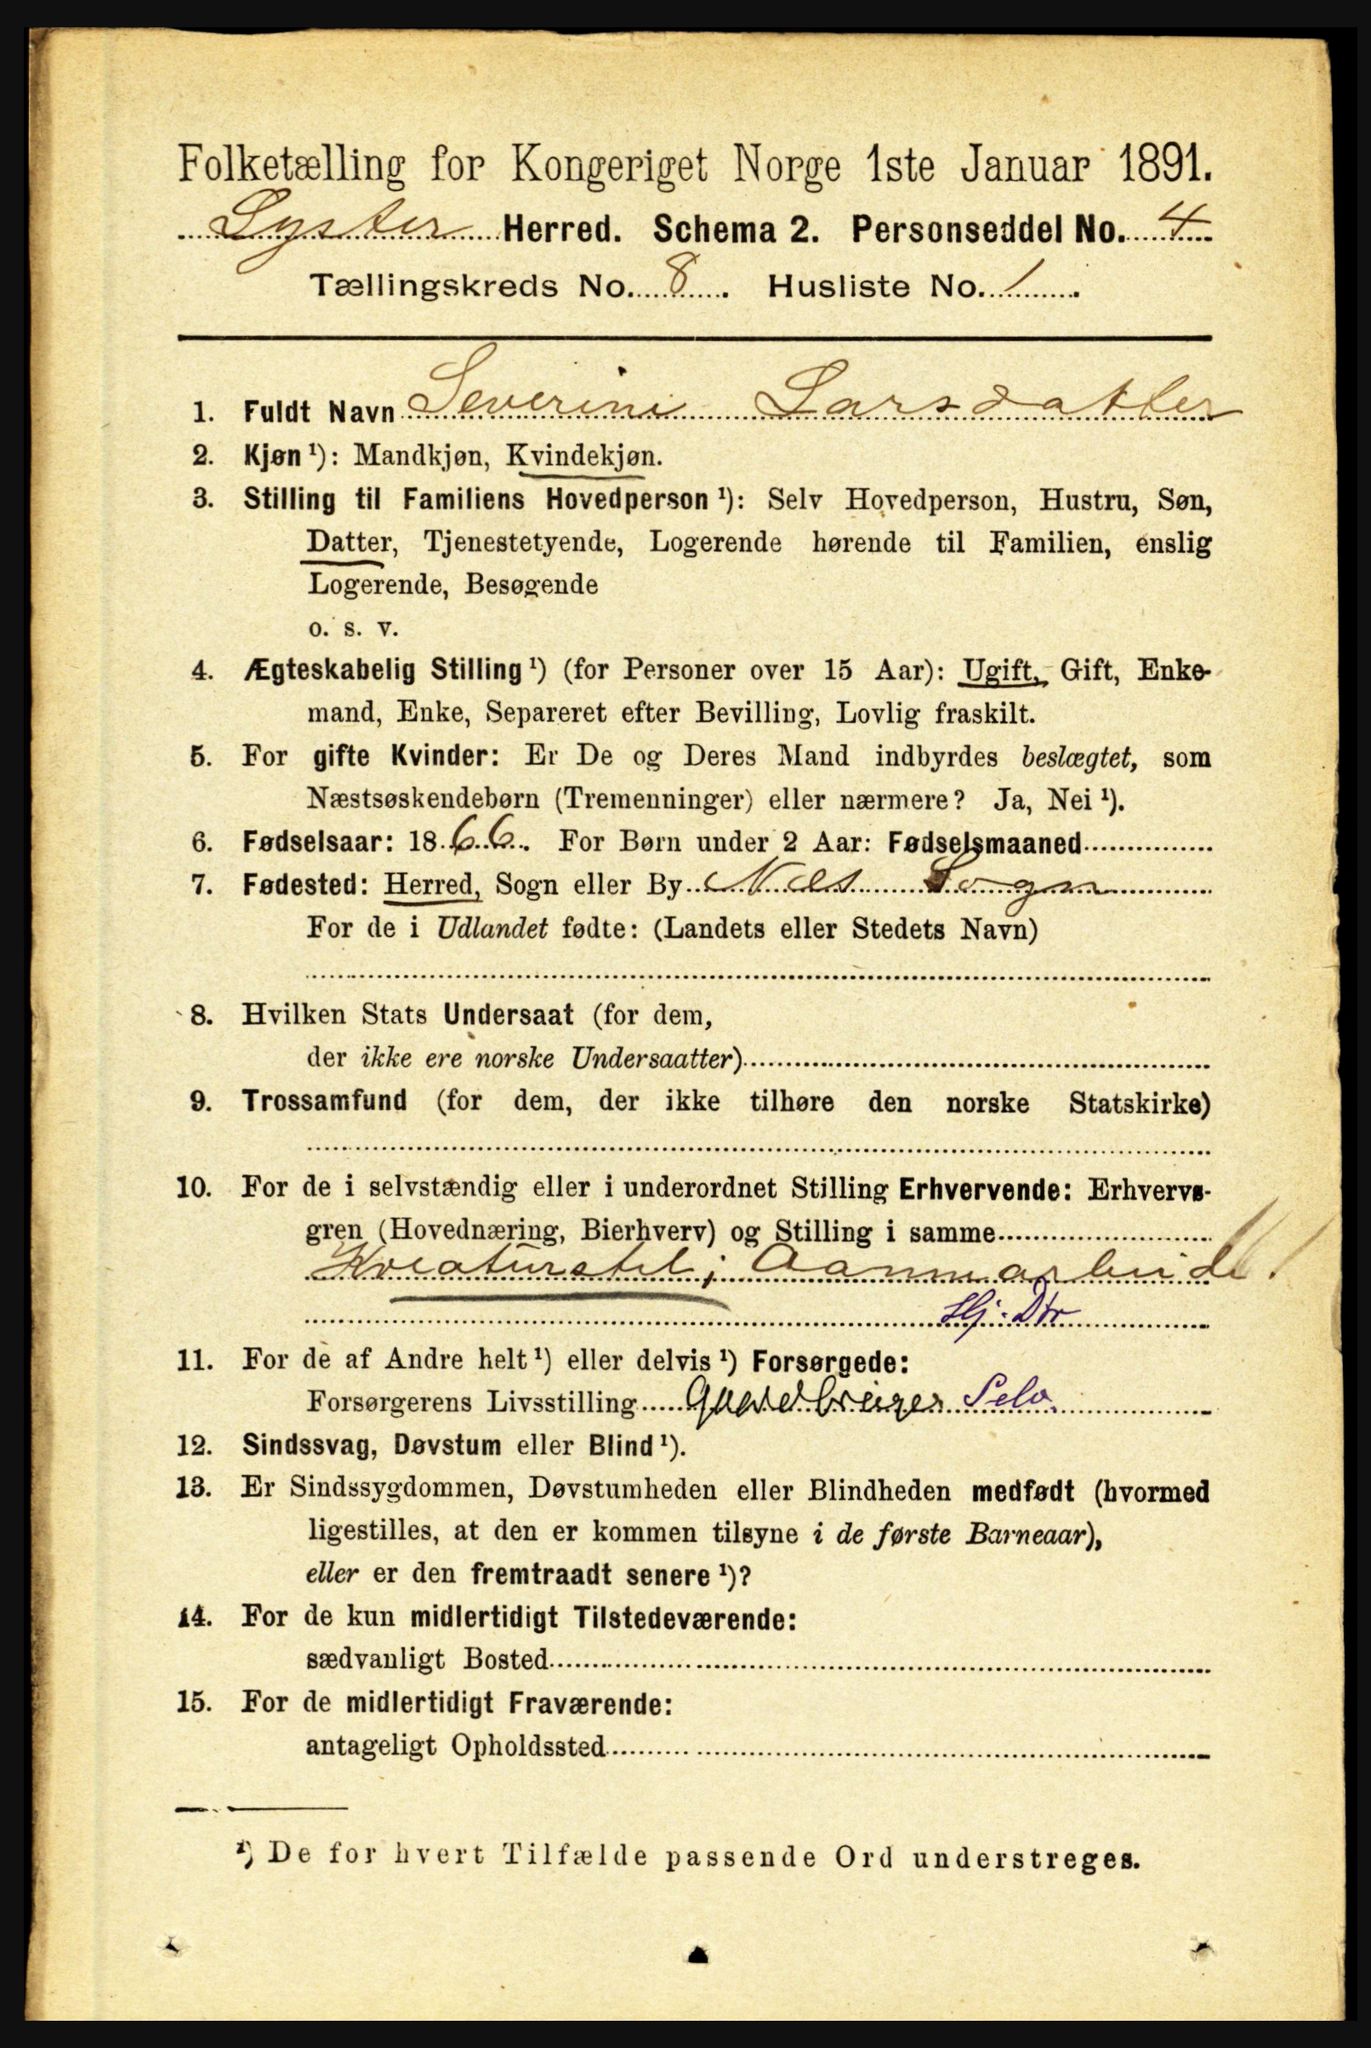 Folketælling for Kongeriget Norge 1ste Januar 1891.
Lyster Herred. Schema 2. Personseddel No. 4
Tællingskreds No. 8. Husliste No. 1.
1. Fuldt Navn Severine Larsdatter
2. Kjøn ¹): Mandkjøn, Kvindekjøn.
3. Stilling til Familiens Hovedperson ¹): Selv Hovedperson, Hustru, Søn,
Datter, Tjenestetyende, Logerende hørende til Familien, enslig
Logerende, Besøgende
o. s. v.
4. Ægteskabelig Stilling ¹) (for Personer over 15 Aar): Ugift, Gift, Enke-
mand, Enke, Separeret efter Bevilling, Lovlig fraskilt.
5. For gifte Kvinder: Er De og Deres Mand indbyrdes beslægtet, som
Næstsøskendebørn (Tremenninger) eller nærmere? Ja, Nei ¹).
6. Fødselsaar: 1866. For Børn under 2 Aar: Fødselsmaaned
7. Fødested: Herred, Sogn eller By Næs Sogn
For de i Udlandet fødte: (Landets eller Stedets Navn)
8. Hvilken Stats Undersaat (for dem,
der ikke ere norske Undersaatter)
9. Trossamfund (for dem, der ikke tilhøre den norske Statskirke)
10. For de i selvstændig eller i underordnet Stilling Erhvervende: Erhvervs-
gren (Hovednæring, Bierhverv) og Stilling i samme
Kreaturstel;
Hj. Dtr
11. For de af Andre helt ¹) eller delvis ¹) Forsørgede:
Forsørgerens Livsstilling Gaardbruger Selv.
12. Sindssvag, Døvstum eller Blind ¹).
13. Er Sindssygdommen, Døvstumheden eller Blindheden medfødt (hvormed
ligestilles, at den er kommen tilsyne i de første Barneaar),
eller er den fremtraadt senere ¹)?
14. For de kun midlertidigt Tilstedeværende:
sædvanligt Bosted
15. For de midlertidigt Fraværende:
antageligt Opholdssted
¹) De for hvert Tilfælde passende Ord understreges.